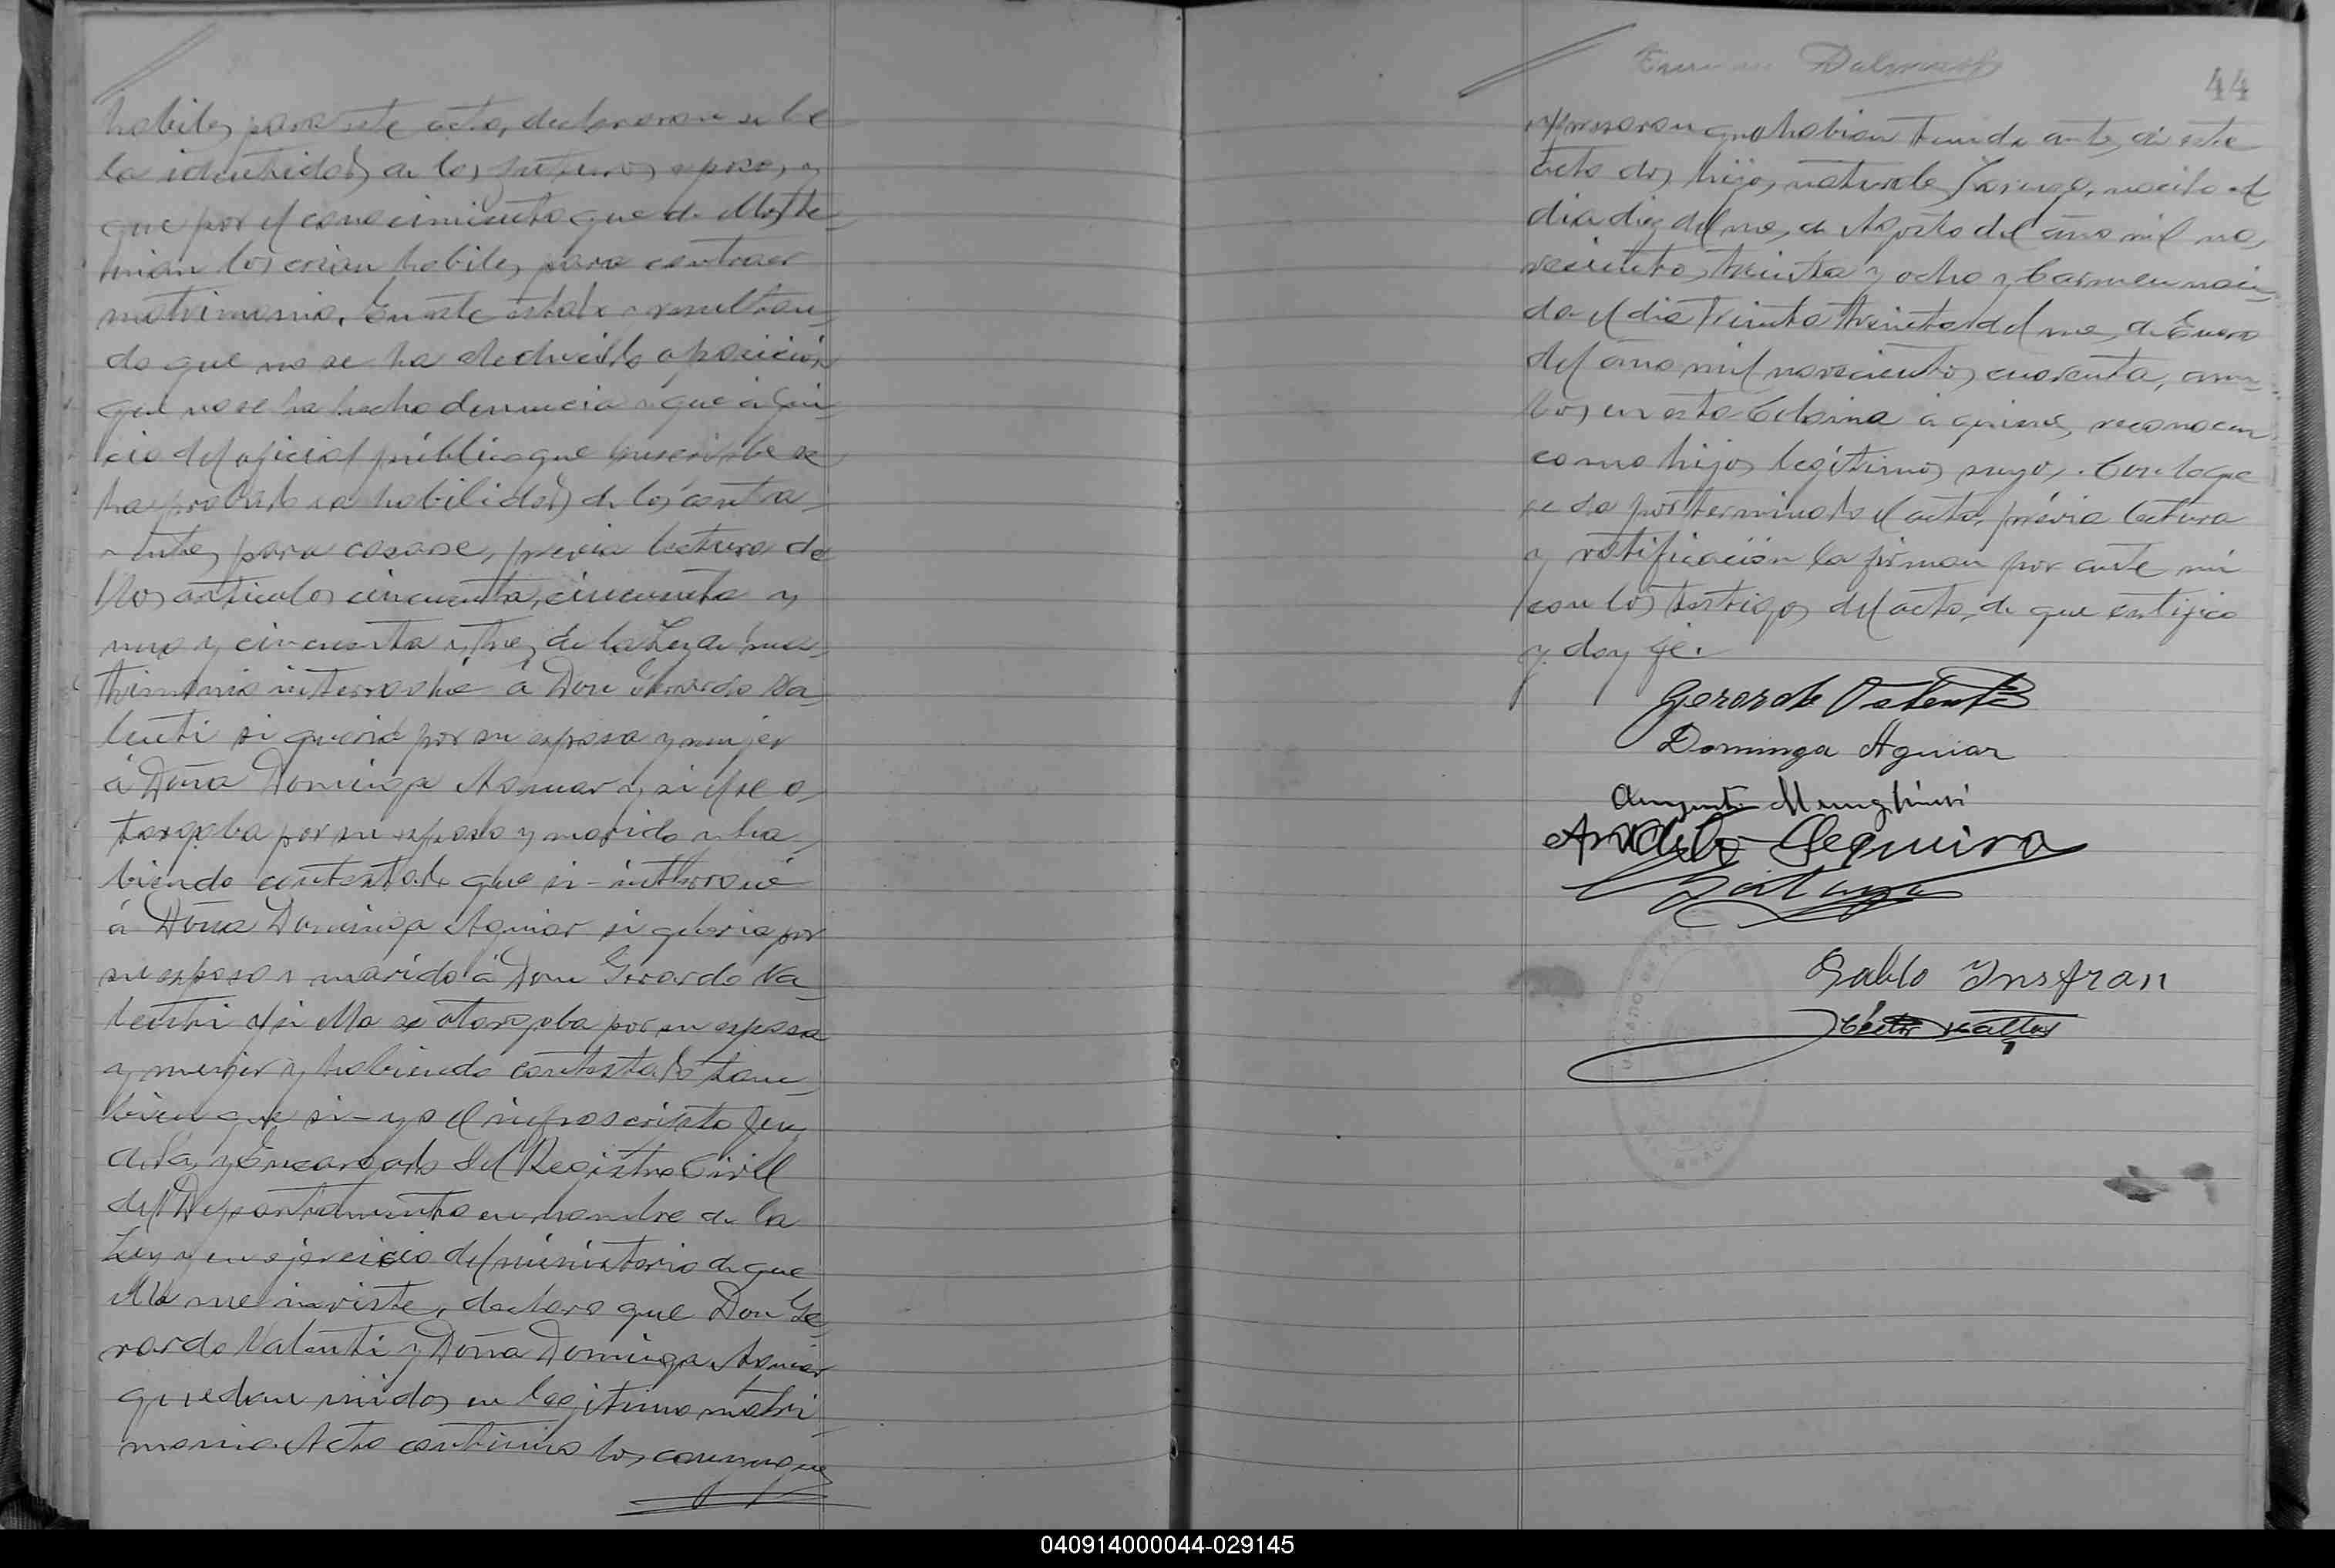 habiles para este acto, declararon sobre
la identidad de los futuros esposos y
que por el conocimiento que de ellos te-
nian los creian habiles para contraer
matrimonio. En este estado y resultan-
do que no se ha deducido oposición
que no se ha hecho denuncia y que á jui-
cio del oficial público que suscribe se
ha probado la habilidad de los contra-
yentes para casarse, previa lectura de
los articulos cincuenta, cincuenta y
uno y cincuenta y tres de la Ley de ma-
trimonio interrogué á Don Gerardo Va-
lenti si queria por su esposa y mujer
á Doña Dominga Aguiar y si él se o-
torgaba por su esposo y marido y ha-
biendo contestado que si - interrogué
á Doña Dominga Aguiar si queria por
su esposo y marido á Don Gerardo Va-
lenti y si ella se otorgaba por su esposa
y mujer y habiendo contestado tam-
bien que si - yo el infrascripto Juez
de Paz y Encargado del Registro Civil
del Departamento en nombre de la
Ley y en ejercicio del ministerio de que
ella me inviste, declaro que Don Ge-
rardo Valenti y Doña Dominga Aguiar
quedan unidos en legitimo matri-
monio. Acto continuo los conyuges
44
expresaron que habian tenido antes de este
acto dos hijos naturales, nacido el
dia diez del mes de Agosto del año mil no-
vecientos treinta y ocho y Carmen naci-
da el dia treinta treinta del mes de Enero
del año mil novecientos cuarenta, am-
bos en esta Colonia á quienes reconocen
como hijos legítimos suyos. Con lo que
se da por terminado el acto, prévia lectura
y ratificación la firman por ante mi
con los testigos del acto, de que certifico
y doy fé.
Gerardo Valenti
Dominga Aguiar
Menghini
Sequeira
Pablo Insfran
040914000044-029145